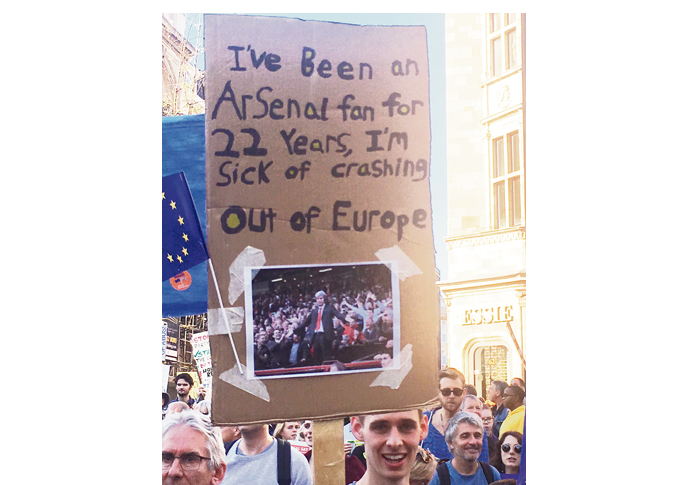 I've Been an
Arsenal fan for
22 Years, I'm
Sick of crashing
Out of Europe
ESSIE